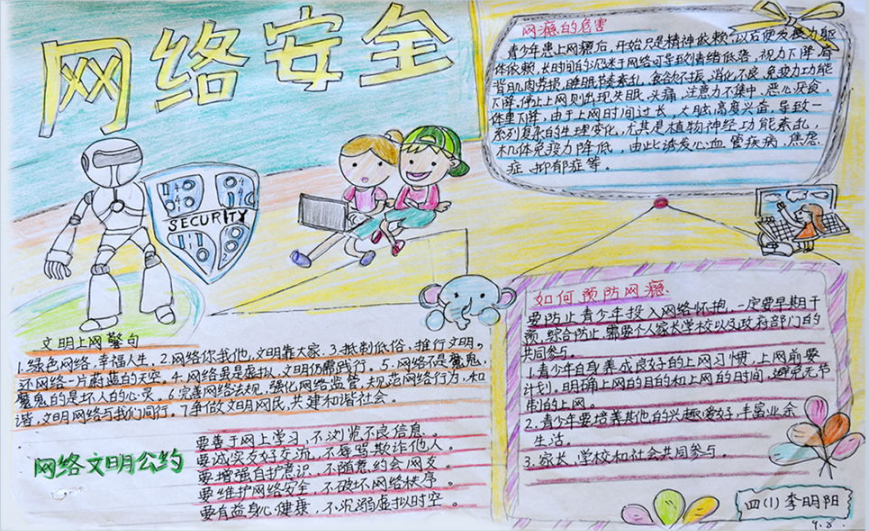 网络安全
SECURITY
网瘾的危害
青少年患上网瘾后,开始只是精神依赖,以后便发展为躯
体依赖,长时间的沉迷于网络可导致情绪低落,视力下降,肩
背肌肉劳损,睡眠节奏紊乱,食欲不振,消化不良,免疫力功能
下降,停止上网则出现失眠,头痛,注意力不集中,恶心厌食,
体重下降,由于上网时间过长,大脑高度兴奋,导致一
系列复杂的生理变化,尤其是植物神经功能紊乱,
机体免疫力降低,由此诱发心血管疾病,焦虑
症、抑郁症等。
文明上网警句
1.绿色网络,幸福人生。2.网络你我他,文明靠大家。3.抵制低俗,推行文明。
还网络一片蔚蓝的天空。4.网络虽是虚拟,文明仍需践行。5.网络不是魔鬼,
魔鬼的是坏人的心灵。6.完善网络法规,强化网络监管,规范网络行为,和
谐,文明网络与我们同行。7.争做文明网民,共建和谐社会。
网络文明公约
要善于网上学习,不浏览不良信息。
要诚实友好交流,不辱骂欺诈他人。
要增强自护意识,不随意约会网友。
要维护网络安全,不破坏网络秩序。
要有益身心健康,不沉溺虚拟时空。
如何预防网瘾
要防止青少年投入网络怀抱,一定要早期干
预,综合防止,需要个人家长学校以及政府部门的
共同参与。
1.青少年自身养成良好的上网习惯,上网前要
计划,明确上网的目的和上网的时间,避免无节
制的上网。
2.青少年要培养其他的兴趣爱好,丰富业余
生活。
3.家长,学校和社会共同参与。
四(1)李明阳
9.8.